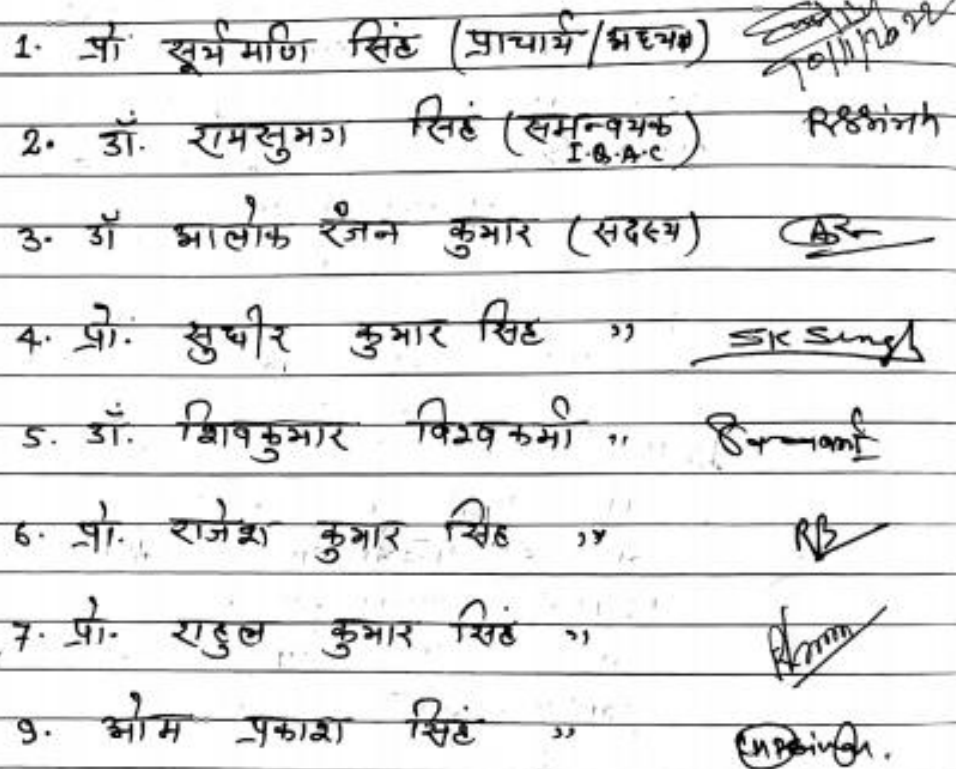 1. प्रो सूर्य मणि सिंह (प्राचार्य/अध्यक्ष) 10/11/2022
2. डॉ. रामसुभग सिंह (समन्वयक I.Q.A.C) RSSingh
3. डॉ आलोक रंजन कुमार (सदस्य)
4. प्रो. सुधीर कुमार सिंह ,, SK Singh
5. डॉ. शिवकुमार विश्वकर्मा ,,
6. प्रो. राजेश कुमार सिंह ,,
7. प्रो. राहुल कुमार सिंह ,,
9. ओम प्रकाश सिंह ,,